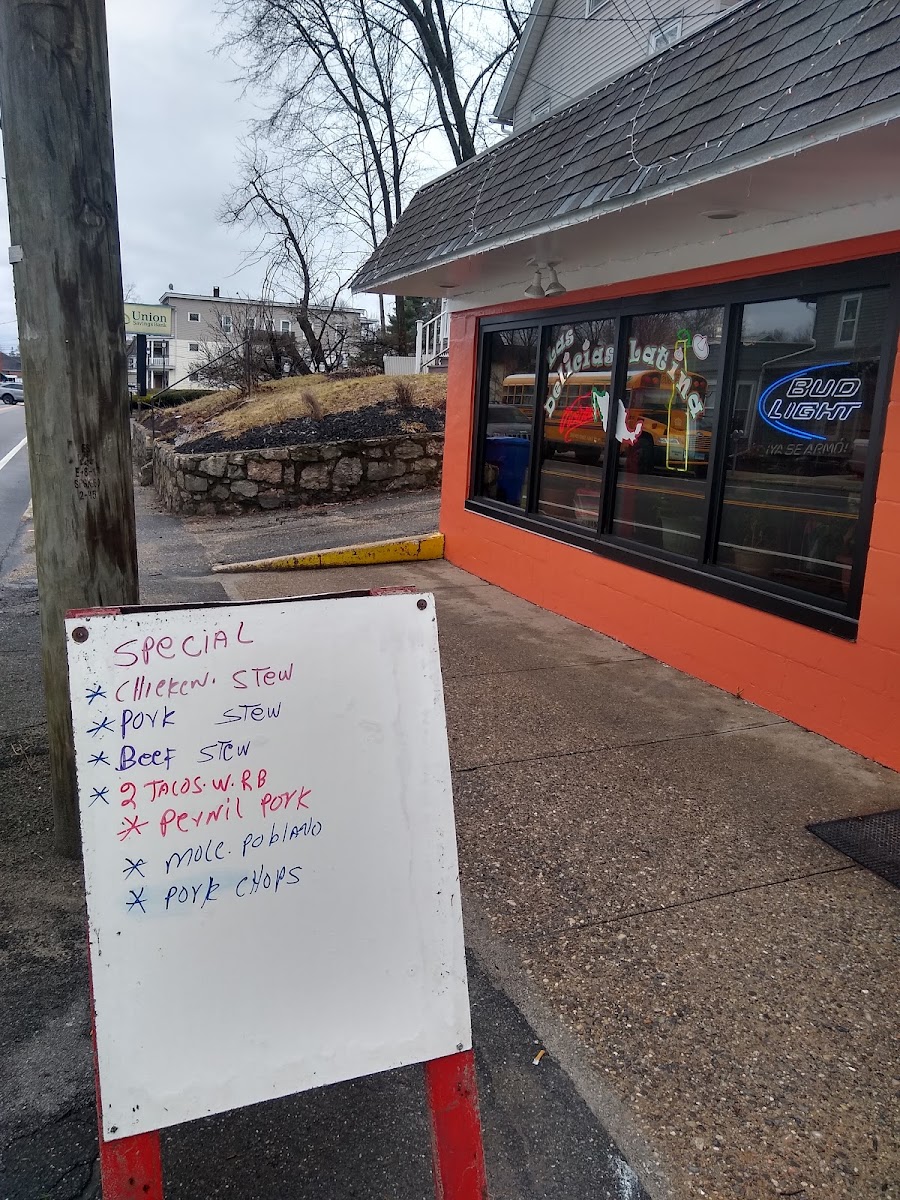 Union
Savings Bank
Las
Delicias Latina
BUD
LIGHT
¡YA SE ARMÓ!
SPECIAL
* CHICKEN. STEW
* PORK STEW
* BEEF STEW
* 2 TACOS.W.RB
* Pernil PORK
* MOLE.PObLANO
* PORK CHOPS